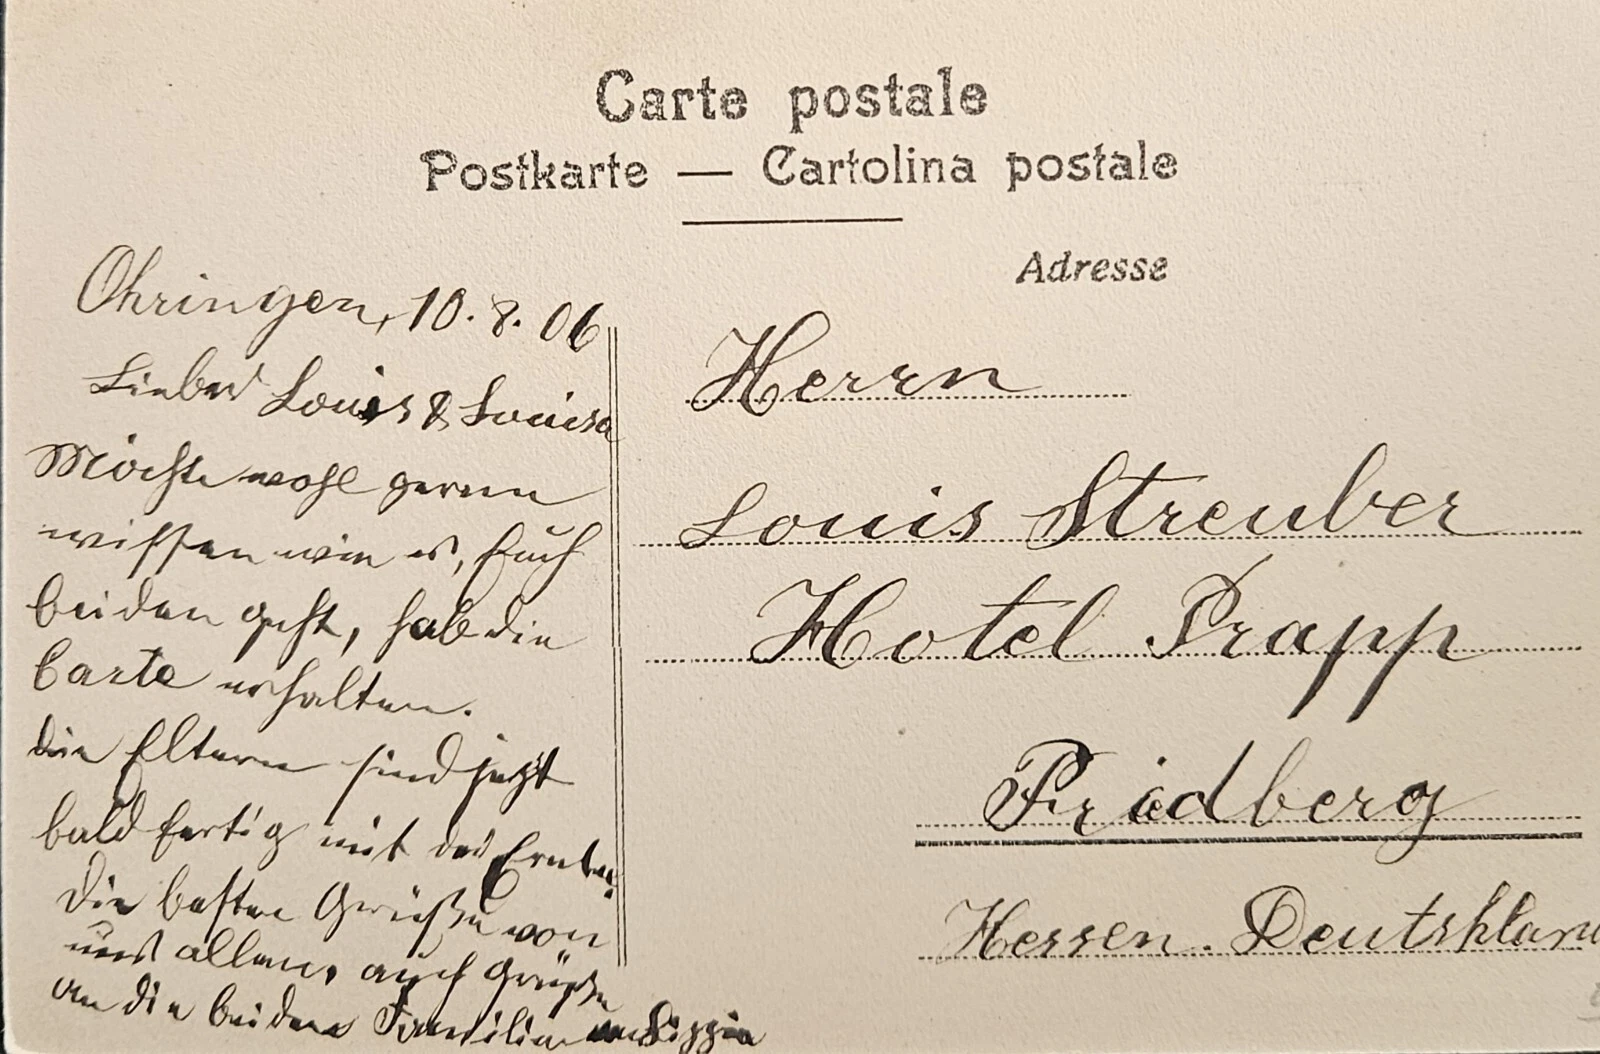 Carte postale
Postkarte — Cartolina postale
Adresse
Ohringen, 10. 8. 06
Lieber Louis & Louisa
Möchte wohl gerne
wissen wie es, Euch
beiden geht, hab die
Carte erhalten.
die Eltern sind jetzt
bald fertig mit der Ernte.
Die besten Grüße von
uns allen, auch Grüße
an die beiden Familien
Herrn
Louis Streuber
Hotel Trapp
Friedberg
Hessen. Deutshland